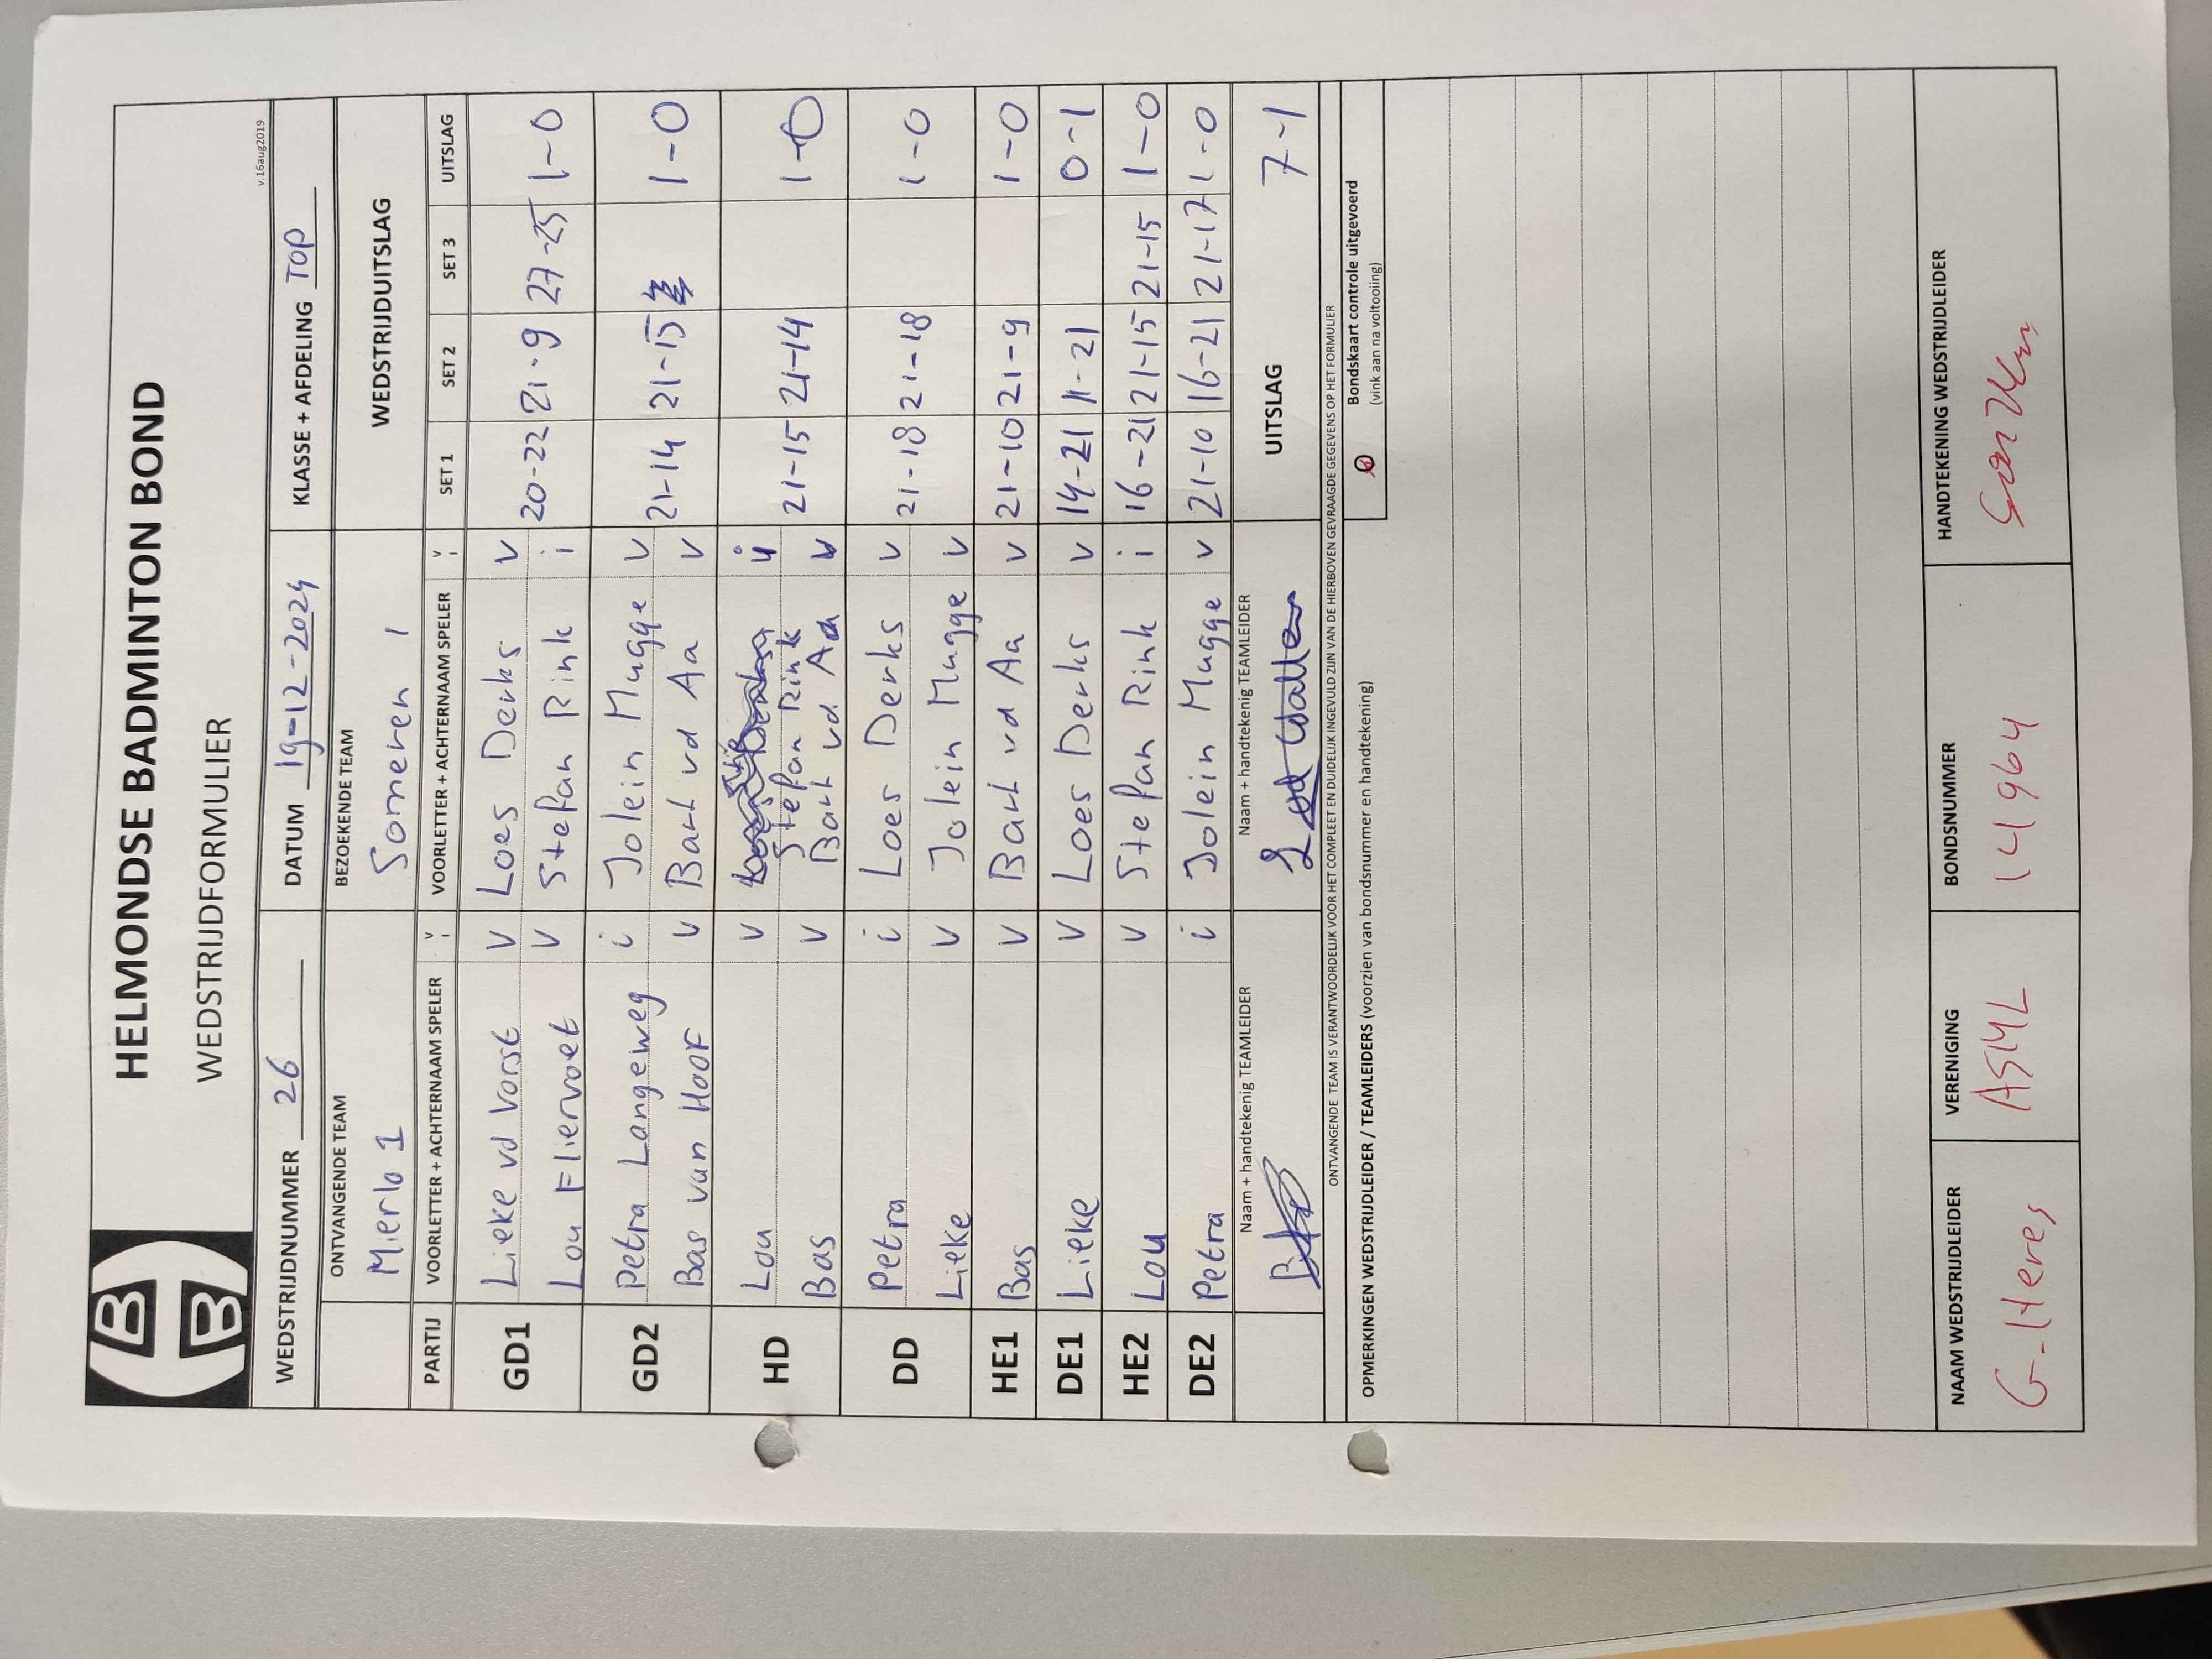 HELMONDSE BADMINTON BOND
WEDSTRIJDFORMULIER
v.16aug2019
WEDSTRIJDNUMMER 26 DATUM 19-12-2024 KLASSE + AFDELING TOP
ONTVANGENDE TEAM BEZOEKENDE TEAM WEDSTRIJDUITSLAG
Mierlo 1 Someren 1
PARTIJ VOORLETTER + ACHTERNAAM SPELER V I VOORLETTER + ACHTERNAAM SPELER V I SET 1 SET 2 SET 3 UITSLAG
GD1 Lieke vd Vorst V Loes Derks V
Lou Fliervoet V Stefan Rink i 20-22 21-9 27-25 1-0
GD2 Petra Langeweg i Jolein Mugge V
Bas van Hoof V Bart vd Aa V 21-14 21-15 1-0
HD Lou V Stefan Rink i
Bas V Bart vd Aa V 21-15 21-14 1-0
DD Petra i Loes Derks V 21-18 21-18 1-0
Lieke V Jolein Mugge V
HE1 Bas V Bart vd Aa V 21-10 21-9 1-0
DE1 Lieke V Loes Derks V 14-21 11-21 0-1
HE2 Lou V Stefan Rink i 16-21 21-15 21-15 1-0
DE2 Petra i Jolein Mugge V 21-10 16-21 21-17 1-0
Naam + handtekenig TEAMLEIDER Naam + handtekenig TEAMLEIDER UITSLAG 7-1
ONTVANGENDE TEAM IS VERANTWOORDELIJK VOOR HET COMPLEET EN DUIDELIJK INGEVULD ZIJN VAN DE HIERBOVEN GEVRAAGDE GEGEVENS OP HET FORMULIER
OPMERKINGEN WEDSTRIJDLEIDER / TEAMLEIDERS (voorzien van bondsnummer en handtekening)
Bondskaart controle uitgevoerd
(vink aan na voltooiing)
NAAM WEDSTRIJDLEIDER VERENIGING BONDSNUMMER HANDTEKENING WEDSTRIJDLEIDER
ASML 141964